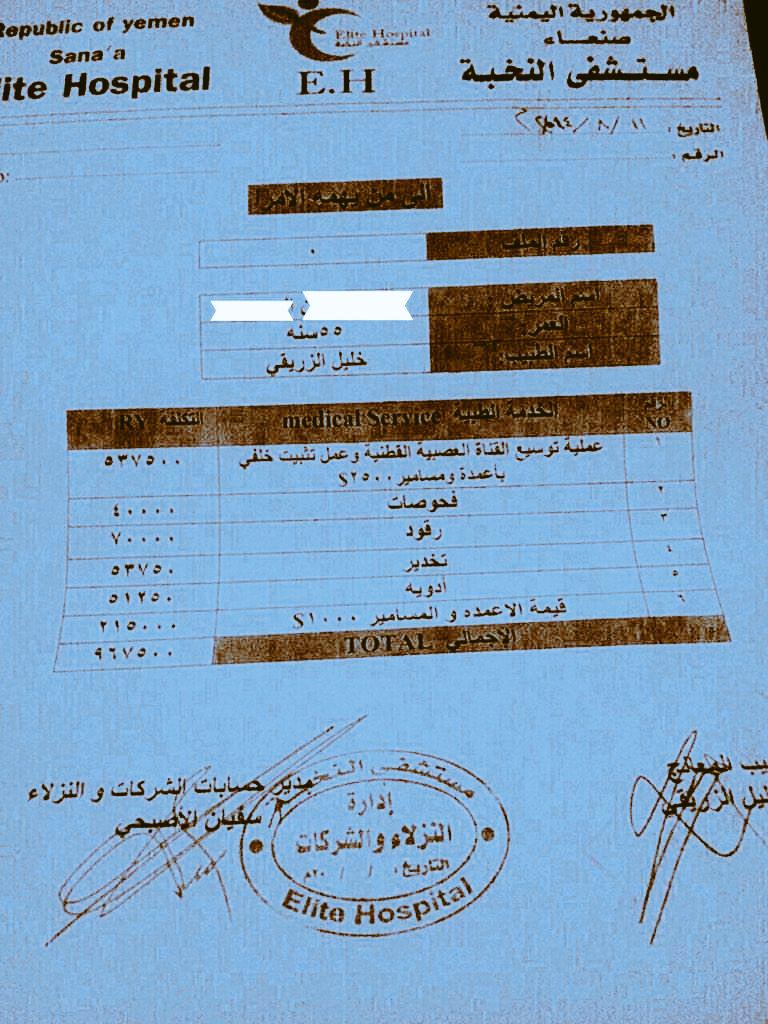 Republic of yemen
Sana'a
lite Hospital
Elite Hospital
مستشفى النخبة
E.H
الجمهورية اليمنية
صنعاء
مستشفى النخبة
التاريخ : ١١ / ٨ /
الرقم :
الى من يهمه الامر
رقم الملف ٠
اسم المريض :
العمر: ٥٥سنه
اسم الطبيب: خليل الزريقي
NO الخدمة الطبية medical Service التكلفة RY
١ عملية توسيع القناة العصبية القطنية وعمل تثبيت خلفي ٥٣٧٥٠٠
بأعمدة ومسامير ٢٥٠٠$
٢ فحوصات ٤٠٠٠٠
٣ رقود ٧٠٠٠٠
٤ تخدير ٥٣٧٥٠
٥ أدويه ٥١٢٥٠
٦ قيمة الاعمده و المسامير ١٠٠٠$ ٢١٥٠٠٠
الاجمالي TOTAL ٩٦٧٥٠٠
يب المعالج
ليل الزريقي
مدير حسابات الشركات و النزلاء
سفيان الاصبحي
مستشفى النخبة
إدارة
النزلاء والشركات
التاريخ: / / ٢٠م
Elite Hospital